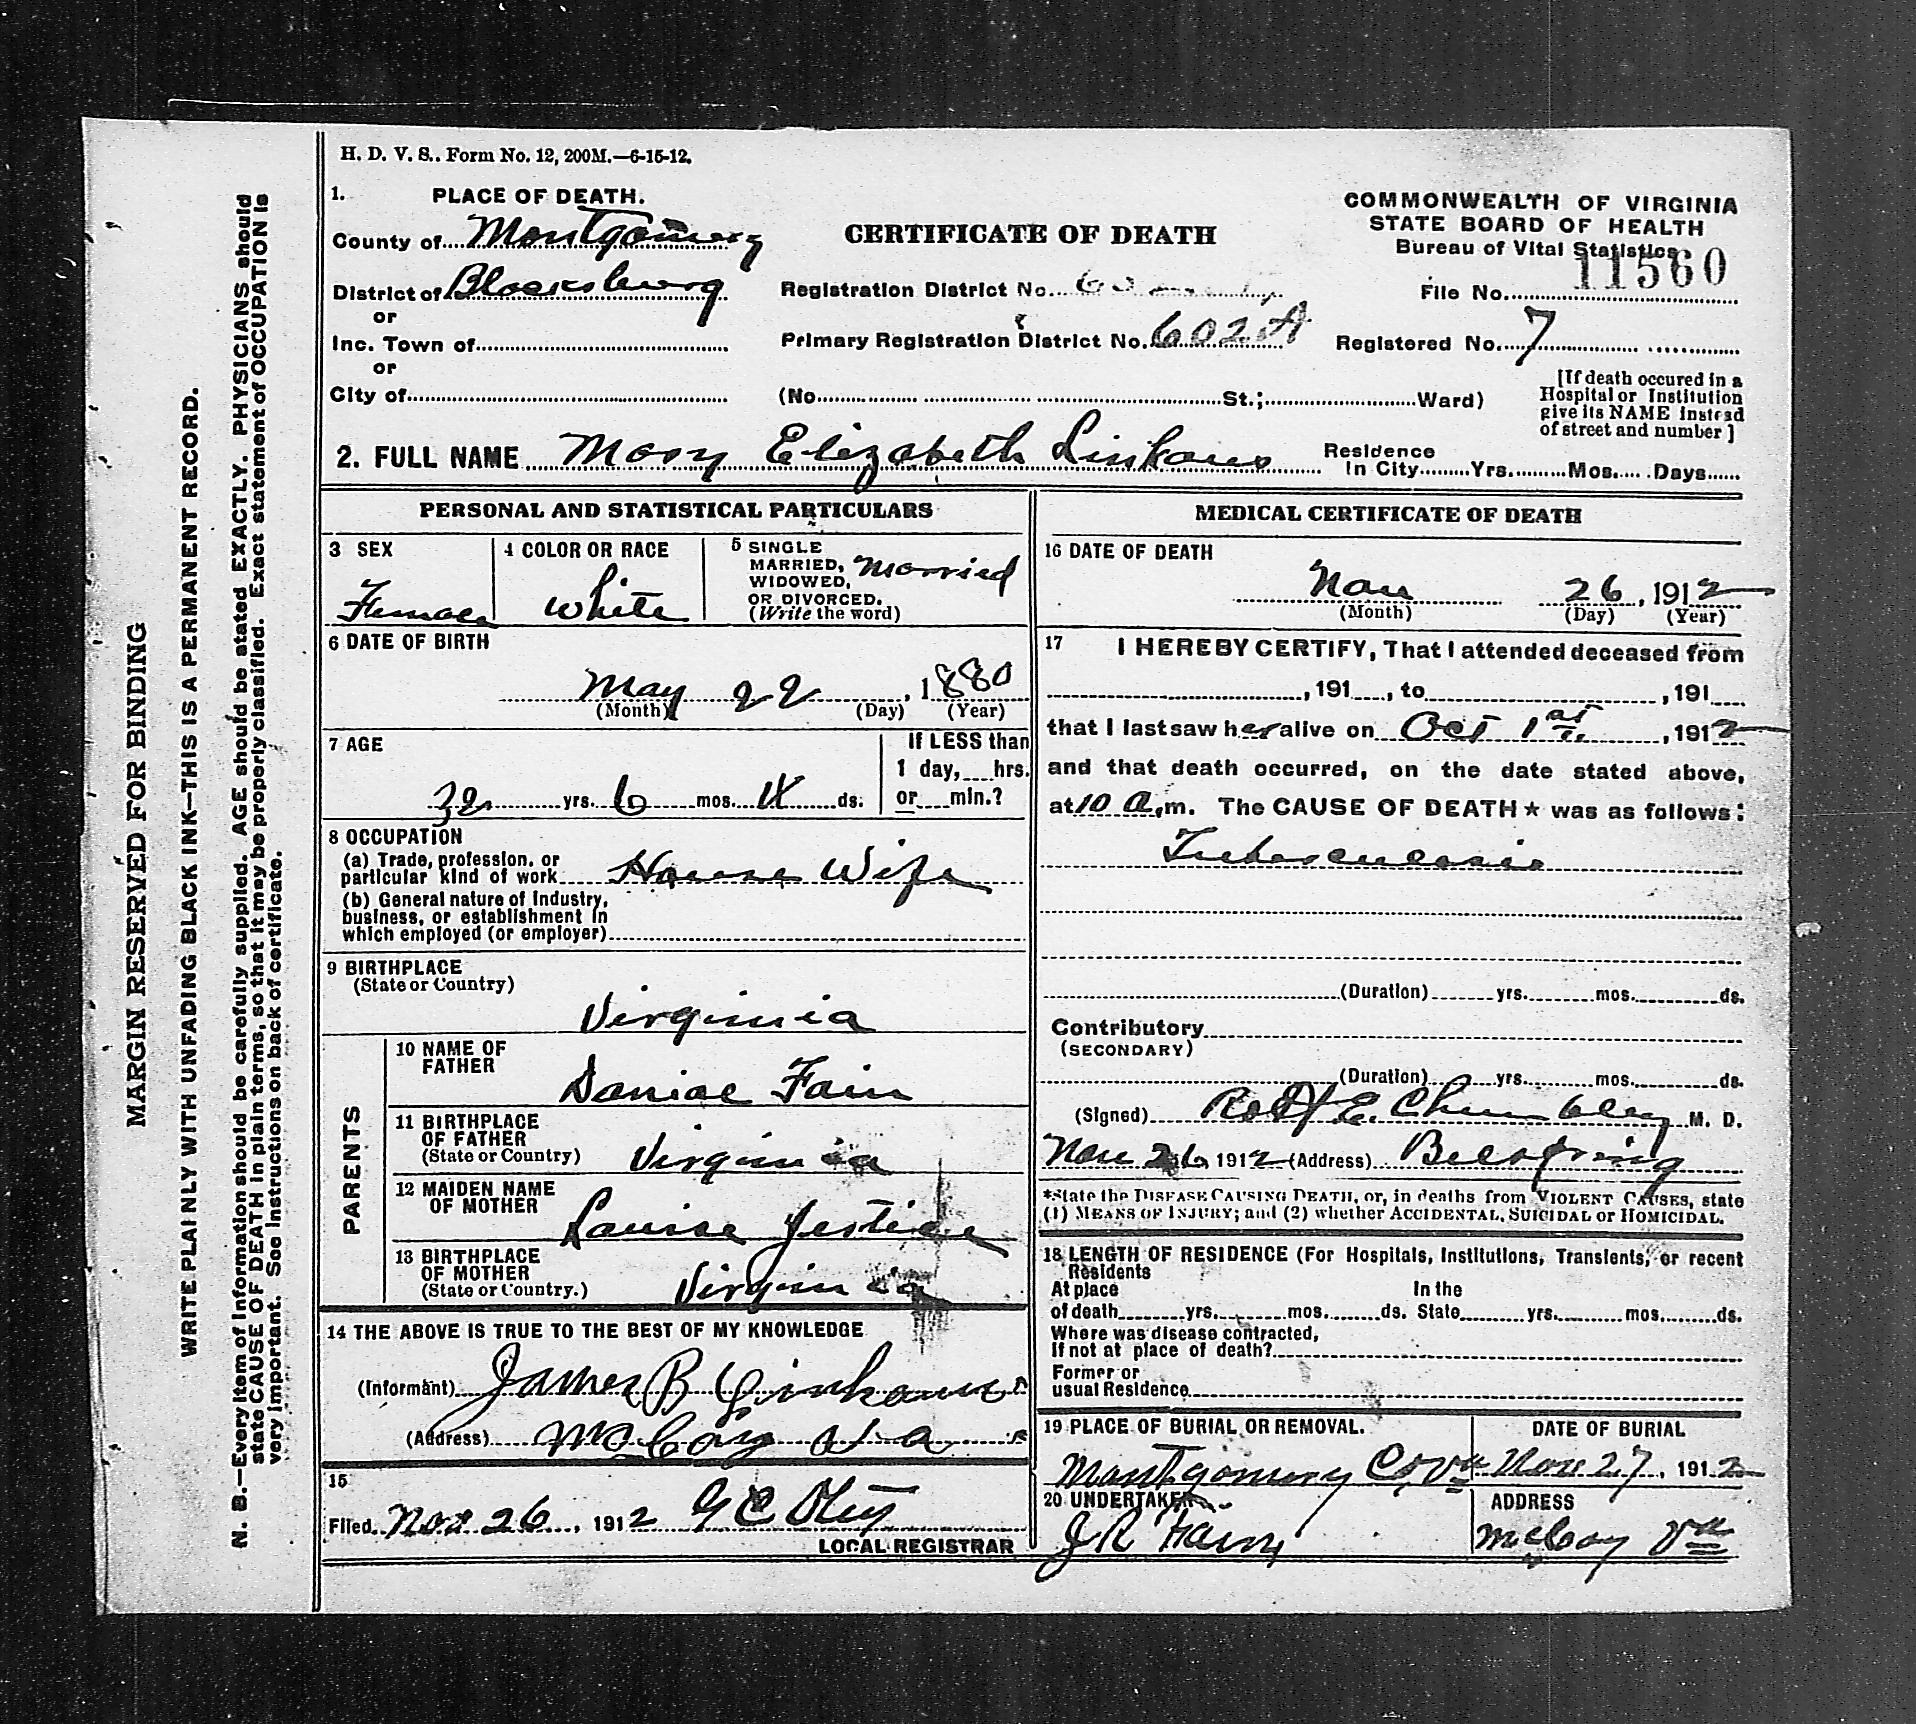 H. D. V. S.. Form No. 12, 200M.—6-15-12.
1. PLACE OF DEATH.
County of Montgomery
District of Blacksburg
or
Inc. Town of
or
City of
CERTIFICATE OF DEATH
COMMONWEALTH OF VIRGINIA
STATE BOARD OF HEALTH
Bureau of Vital Statistics
11560
Registration District No.
File No.
Primary Registration District No. 602A
Registered No. 7
(No. St.; Ward)
[If death occured in a
Hospital or Institution
give its NAME instead
of street and number ]
2. FULL NAME Mary Elizabeth Linkous
Residence
In City Yrs. Mos. Days
PERSONAL AND STATISTICAL PARTICULARS
3 SEX
Female
4 COLOR OR RACE
White
5 SINGLE
MARRIED,
WIDOWED,
OR DIVORCED.
(Write the word)
Married
6 DATE OF BIRTH
May 22, 1880
(Month) (Day) (Year)
7 AGE
32 yrs. 6 mos. 4 ds.
If LESS than
1 day, hrs.
or min.?
8 OCCUPATION
(a) Trade, profession, or
particular kind of work House Wife
(b) General nature of Industry,
business, or establishment in
which employed (or employer)
9 BIRTHPLACE
(State or Country)
Virginia
PARENTS
10 NAME OF
FATHER
Daniel Fain
11 BIRTHPLACE
OF FATHER
(State or Country) Virginia
12 MAIDEN NAME
OF MOTHER
Louise Jestice
13 BIRTHPLACE
OF MOTHER
(State or Country.) Virginia
14 THE ABOVE IS TRUE TO THE BEST OF MY KNOWLEDGE
(Informant) James B Linkous
(Address) McCoy Va
15
Filed Nov 26, 1912 G C Oley
LOCAL REGISTRAR
MEDICAL CERTIFICATE OF DEATH
16 DATE OF DEATH
Nov 26, 1912
(Month) (Day) (Year)
17 I HEREBY CERTIFY, That I attended deceased from
, 191 , to , 191
that I last saw her alive on Oct 1st, 1912
and that death occurred, on the date stated above,
at 10 a.m. The CAUSE OF DEATH * was as follows:
Tuberculosis
(Duration) yrs. mos. ds.
Contributory
(SECONDARY)
(Duration) yrs. mos. ds.
(Signed) Robt E. Chumbley M. D.
Nov 26 1912 (Address) Belspring
*State the DISEASE CAUSING DEATH, or, in deaths from VIOLENT CAUSES, state
(1) MEANS OF INJURY; and (2) whether ACCIDENTAL, SUICIDAL or HOMICIDAL.
18 LENGTH OF RESIDENCE (For Hospitals, Institutions, Transients, or recent
Residents
At place In the
of death yrs. mos. ds. State yrs. mos. ds.
Where was disease contracted,
If not at place of death?
Former or
usual Residence
19 PLACE OF BURIAL OR REMOVAL.
Montgomery Co Va
DATE OF BURIAL
Nov 27, 1912
20 UNDERTAKER
J R Fain
ADDRESS
McCoy Va
MARGIN RESERVED FOR BINDING
WRITE PLAINLY WITH UNFADING BLACK INK—THIS IS A PERMANENT RECORD.
N. B.—Every item of information should be carefully supplied. AGE should be stated EXACTLY. PHYSICIANS should
state CAUSE OF DEATH in plain terms, so that it may be properly classified. Exact statement of OCCUPATION is
very important. See instructions on back of certificate.